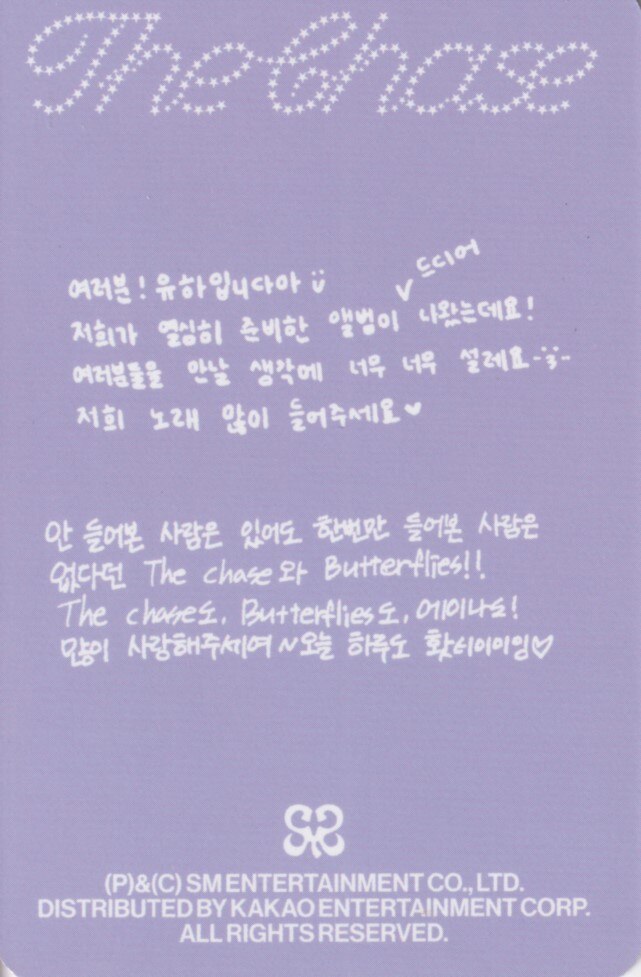 The Chase
여러분! 유하입니다아
드디어
저희가 열심히 준비한 앨범이 ✓ 나왔는데요!
여러분들을 만날 생각에 너무 너무 설레요
저희 노래 많이 들어주세요♥
안 들어본 사람은 있어도 한번만 들어본 사람은
없다던 The chase와 Butterflies!!
The chase도, Butterflies도, 에이나도!
많이 사랑해주세여~오늘 하루도 홧티이이잉♡
(P)&(C) SM ENTERTAINMENT CO., LTD.
DISTRIBUTED BY KAKAO ENTERTAINMENT CORP.
ALL RIGHTS RESERVED.